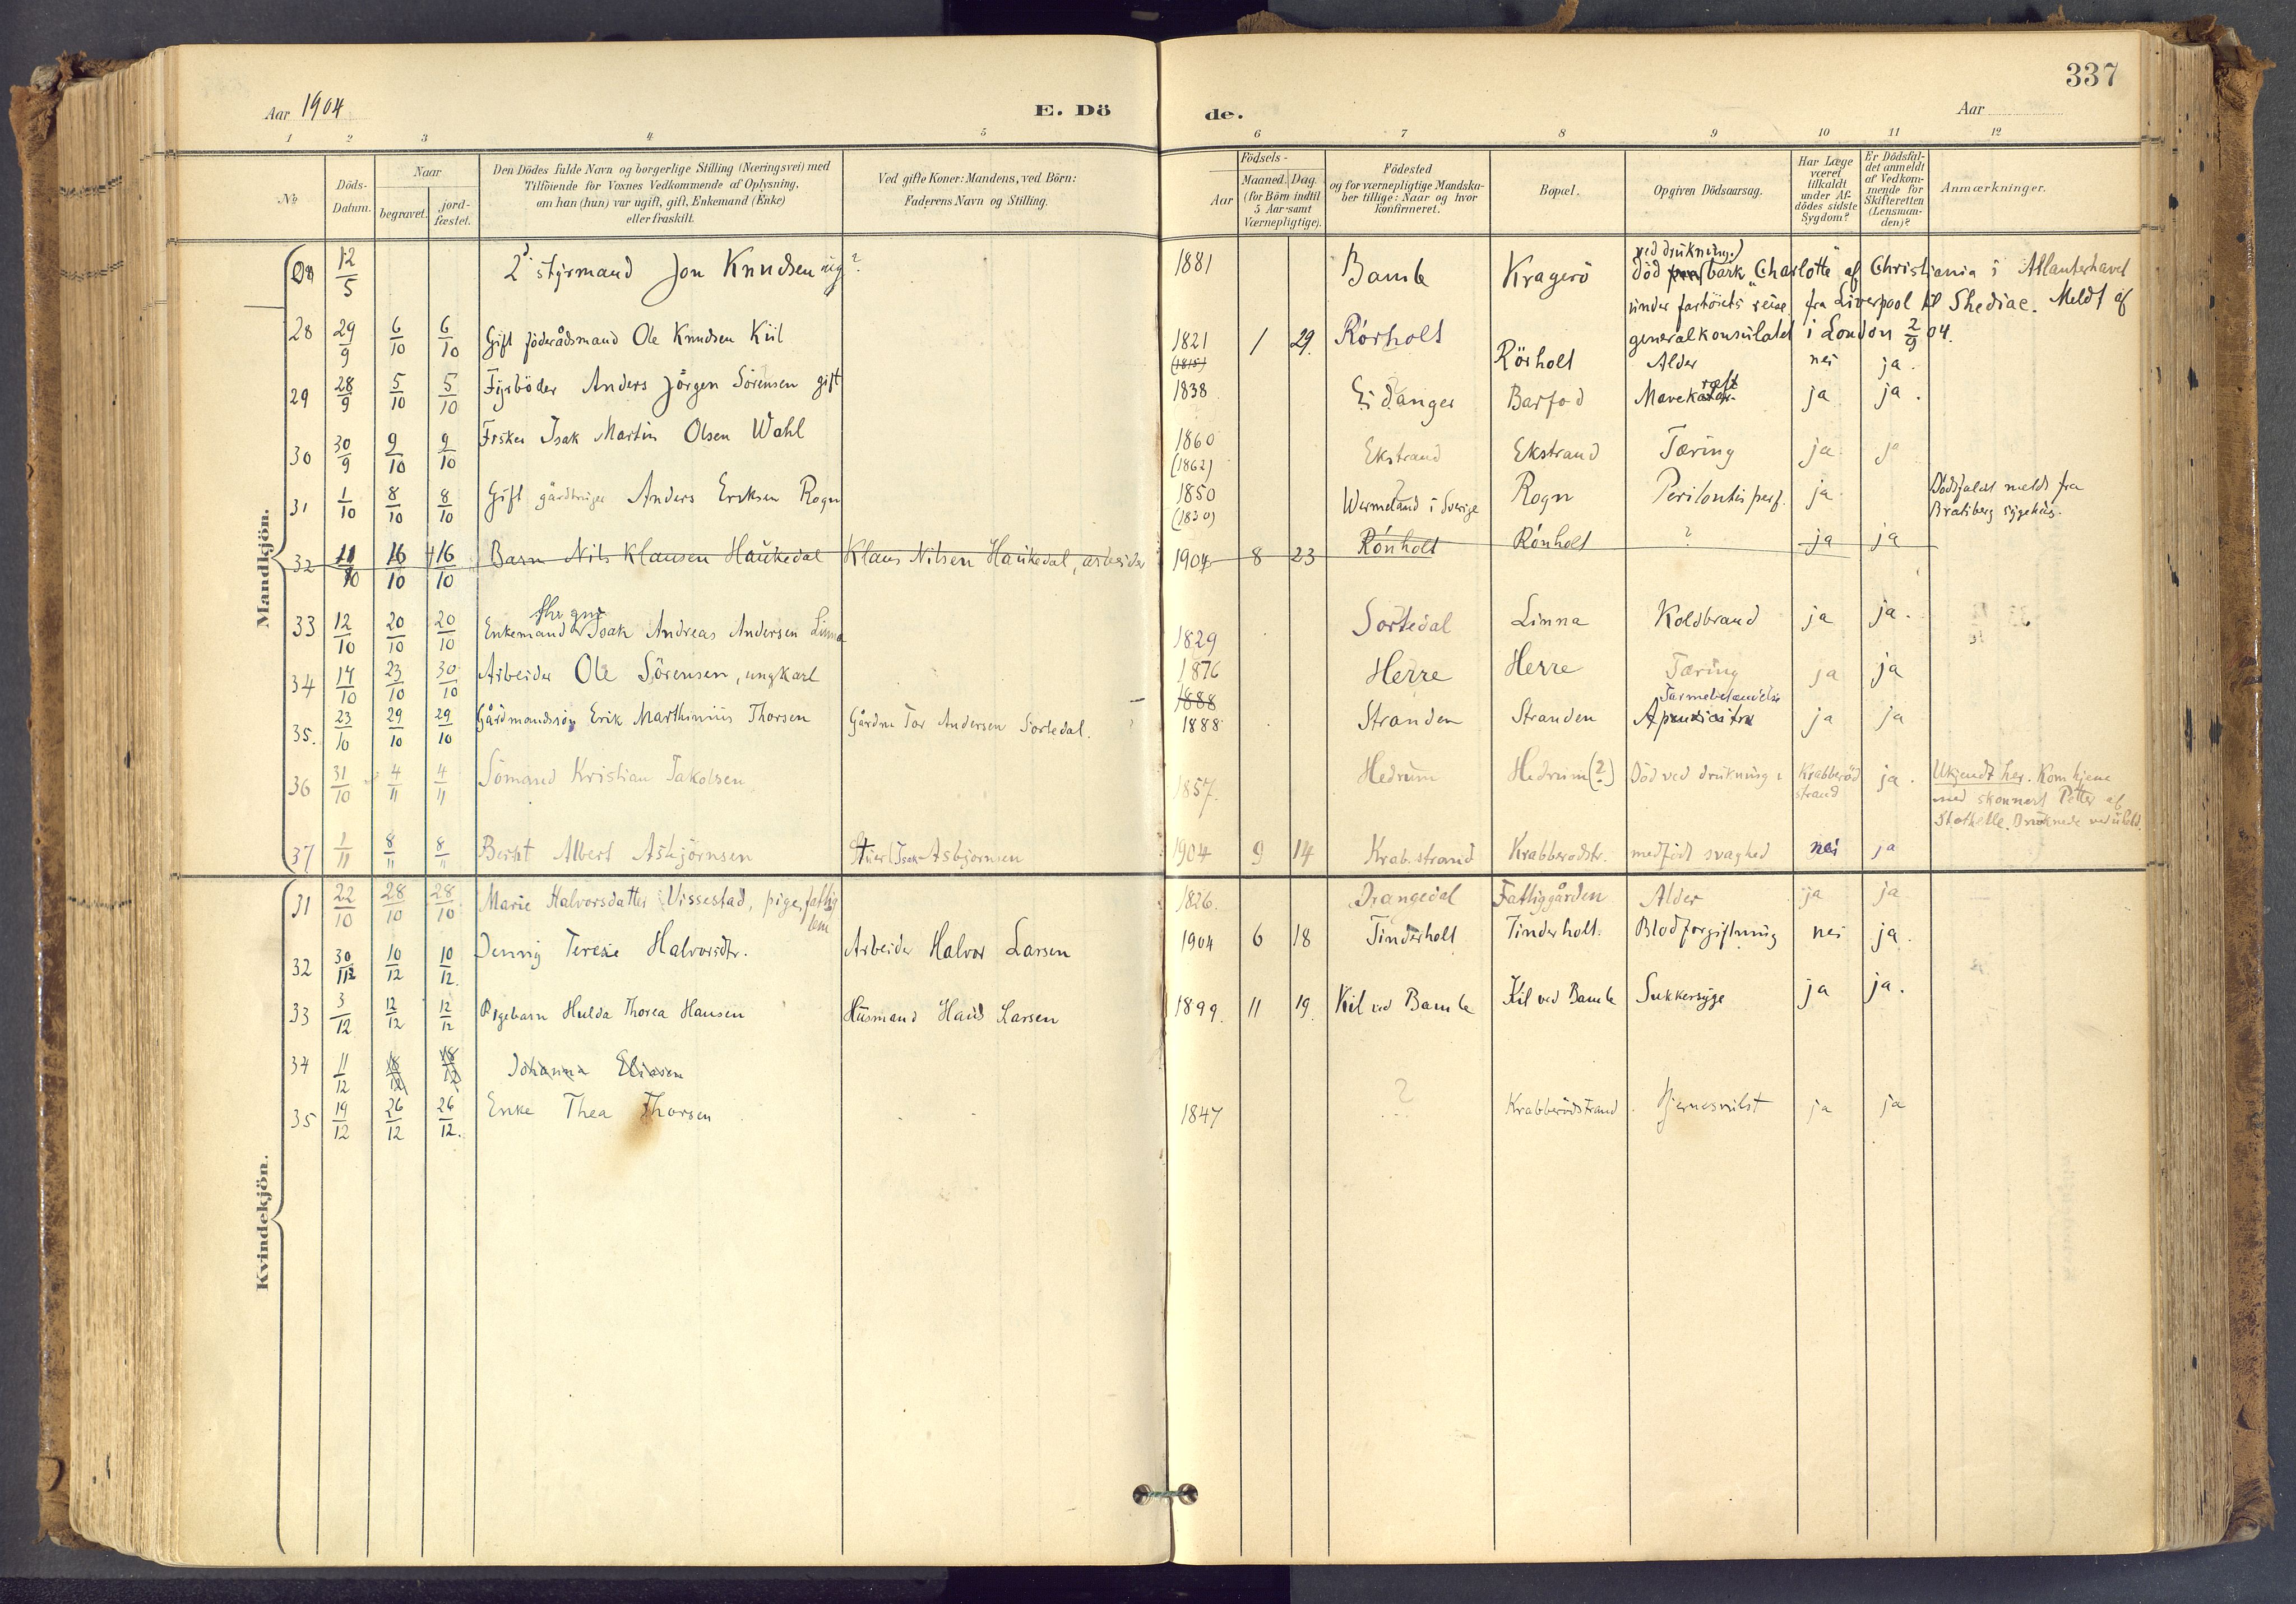 337
Aar 1904 E. Dö de. Aar
1 2 3 4 5 6 7 8 9 10 11 12
No
Döds-Datum.
Naar
begravet. jord-fæstet.
Den Dödes fulde Navn og borgerlige Stilling (Næringsvei) med
Tilföiende for Voxnes Vedkommende af Oplysning,
om han (hun) var ugift, gift, Enkemand (Enke)
eller fraskilt.
Ved gifte Koner: Mandens, ved Börn:
Faderens Navn og Stilling.
Födsels-
Aar Maaned. Dag.
(for Börn indtil
5 Aar samt
Værnepligtige).
Födested
og for værnepligtige Mandska-
ber tillige: Naar og hvor
konfirmeret.
Bopæl.
Opgiven Dödsaarsag.
Har Læge
været
tilkaldt
under Af-
dödes sidste
Sygdom?
Er Dödsfal-
det anmeldt
af Vedkom-
mende for
Skifteretten
(Lensman-
den)?
Anmærkninger.
Mandkjön.
12/5 2den styrmand Jon Knudsen ug ? 1881 Bamle Kragerö ved drukning)
död bark "Charlotte" af Christiania i Atlanterhavet
under fartöiets reise fra Liverpool til Shediac. Meldt af
generalkonsulatet i London 2/9 04.
28 29/9 6/10 6/10 Gift föderådsmand Ole Knudsen Kiil 1821 (1815) 1 29. Rörholt Rörholt Alder nei ja.
29 28/9 5/10 5/10 Fyrböder Anders Jörgen Sörensen gift 1838 Eidanger Barfod Mavekræft ja ja.
30 30/9 9/10 9/10 Fisker Isak Martin Olsen Wahl 1860 (1862) Ekstrand Ekstrand Tæring ja ja
31 1/10 8/10 8/10 Gift gårdbruger Anders Eriksen Rogn 1850 (1830) ? Wermeland i Sverige Rogn Peritonitis perf. ja Dödsfaldet meldt fra
Bratsberg sygehus.
32 11/10 16/10 16/10 Barn Nils Klausen Haukedal Klaus Nilsen Haukedal, arbeider 1904 8 23 Rönholt Rönholt ? ja ja
33 12/10 20/10 20/10 Enkemand Isak Andreas Andersen Linna 1829 Sortedal Linna Koldbrand ja ja.
34 14/10 23/10 30/10 Arbeider Ole Sörensen, ungkarl 1876 Herre Herre Tæring ja ja
35. 23/10 29/10 29/10 Gårdmandssön Erik Marthinius Thorsen Gårdm Tor Andersen Sortedal. 1888 1888 Stranden Stranden Tarmbetændelse ja ja
36 31/10 4/11 4/11 Sömand Kristian Jakobsen 1857. Hedrum Hedrum (?) Död ved drukning i Krabberöd
strand ja. Ukjendt her. Kom hjem
med skonnert Petter af
Stathelle. Druknede ved uheld.
37 1/11 8/11 8/11 Bernt Albert Asbjörnsen Stuer Isak Asbjörnsen 1904 9 14 Krab.strand Krabberödstr. medfödt svaghed nei ja
Kvindekjön.
31 22/10 28/10 28/10 Marie Halvorsdatter Vissestad, pige, fattig
lem 1826. Drangedal Fattiggården Alder ja ja
32 30/11 10/12 10/12. Jenny Terese Halvorsdtr. Arbeider Halvor Larsen 1904 6 18 Tinderholt Tinderholt. Blodforgiftning nei ja.
33 3/12 12/12 12/12 Pigebarn Hulda Thorea Hansen Husmand Hans Larsen 1899. 11 19. Kil ved Bamle Kil ved Bamle Sukkersyge ja ja.
34 11/12 18/12 18/12 Johanna Eliasen
35 19/12 26/12 26/12. Enke Thea Thorsen 1847 ? Krabberödstrand Hjernesvulst ja ja